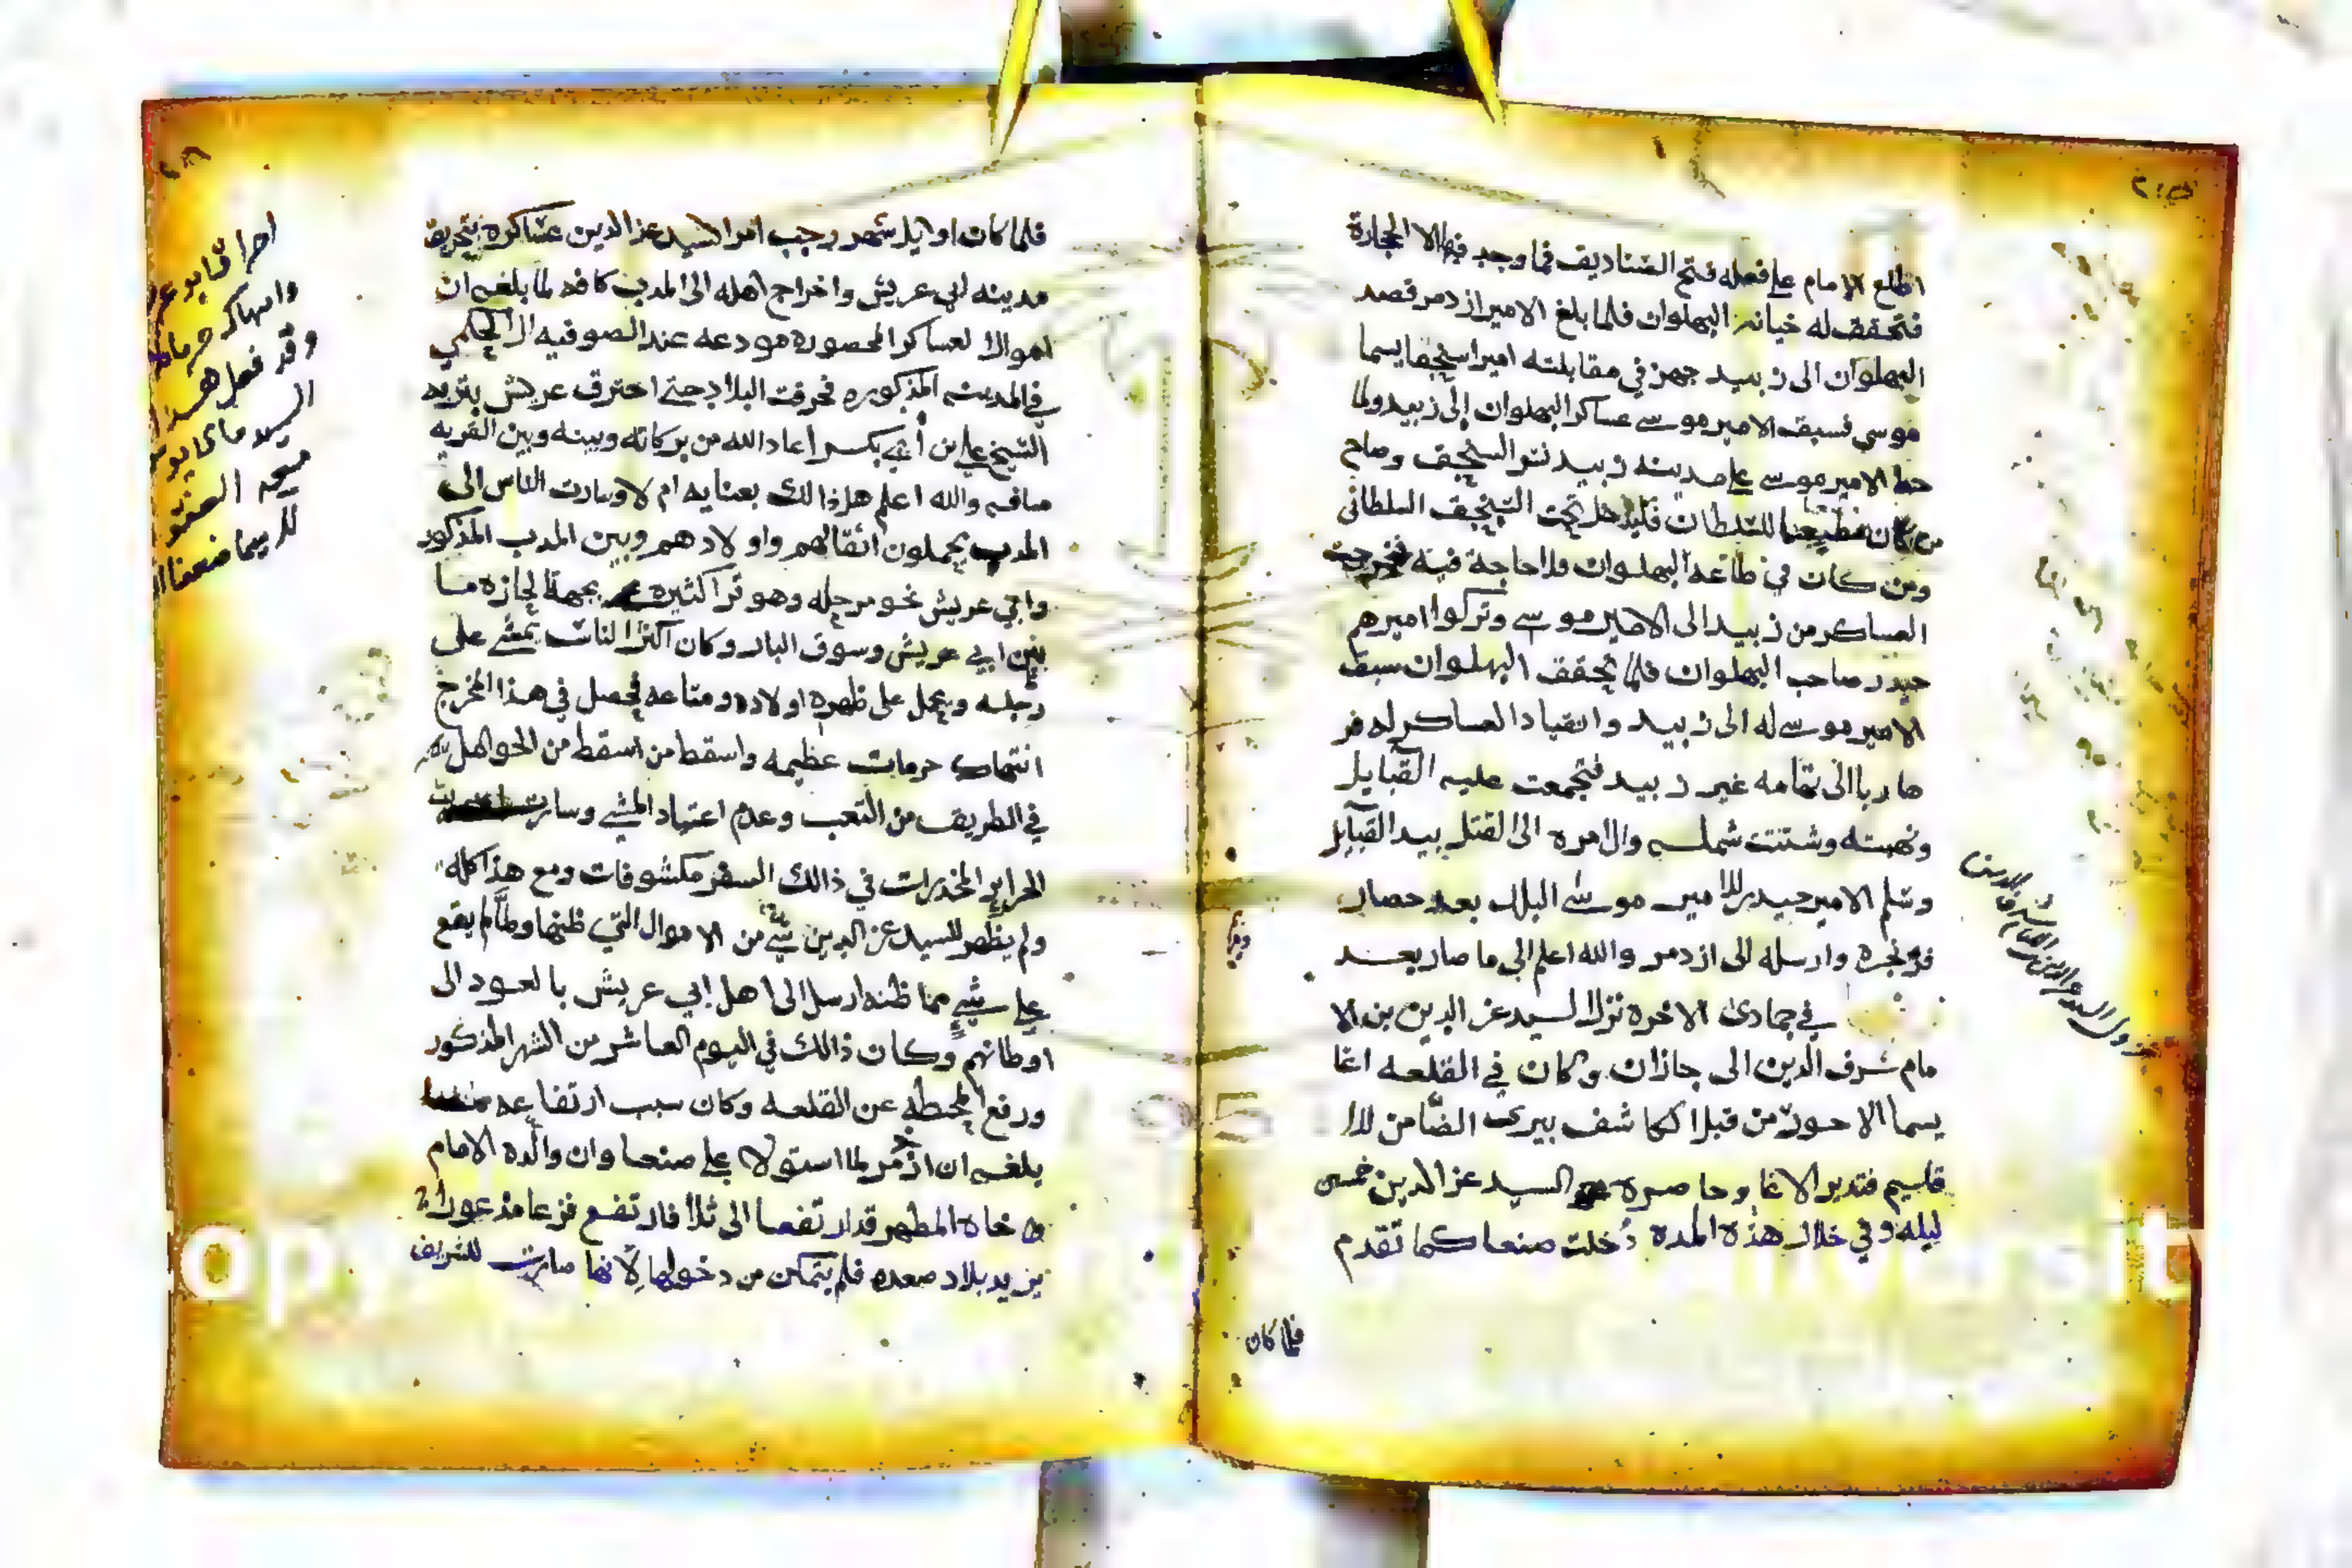 اطلع الامام على فعله فتح الصناديق فما وجد فيها الا الحجارة
فتحقق له خيانة البهلوان فلما بلغ الامير ازدمر قصد
البهلوان الى زبيد جهز في مقابلته اميرا سنجقا يسما
موسي فسبق الامير موسى عساكر البهلوان إلى زبيد ولما
حط الامير موسى على مدينه زبيد نشر السنجق وصاح
من كان مطيعا للسلطان فليدخل تحت السنجق السلطانى
ومن كان في طاعة البهلوان فلا حاجة فيه فخرجت
العساكر من زبيد الى الامير موسى وتركوا اميرهم
حيدر صاحب البهلوان فلما تحقق البهلوان سبق
الامير موسى له الى زبيد وانقياد العساكر له فر
هاربا الى تهامه غير زبيد فتجمعت عليه القبايل
ونهبته وشتتت شمله وال امره الى القتل بيد القبايل
وسلم الامير حيدر للامير موسى البلاد بعد حصار
وارسله الى ازدمر والله اعلم الى ما صار بعد
في جمادى الاخرة نزل السيد عز الدين بن الا
مام شرف الدين الى جازان وكان في القلعه اغا
يسما الاحول من قبل الكاشف بيرى الضامن لال
قاسم فتدبر الاغا وحاصره السيد عز الدين خمسى
ليله وفي خلال هذه المده دخلت صنعا كما تقدم
فلما كان
فلما كان اوايل شهر رجب امر السيد عز الدين عساكره بتحريق
مدينه ابي عريش واخراج اهله الى المدب كافه لما بلغه ان
اموالا لعساكر المحصوره مودعه عند الصوفيه
في المدينه المذكوره فحرقت البلاد حتى احترق عريش بتربه
الشيخ علي بن أبي بكر اعاد الله من بركاته وبينه وبين القريه
مسافه والله اعلم هل ذالك بعنايه ام لا وسارت الناس الى
المدب يحملون أثقالهم واولادهم وبين المدب المذكور
وابي عريش نحو مرحله وهو قرا كثيره بجهة لجازه ما
بين ابي عريش وسوق البار وكان اكثر الناس يمشى على
رجله ويحمل على ظهره اولاده ومتاعه فحصل في هذا المخرج
انتهاك حرمات عظيمه واسقط من اسقط من الحوامل
في الطريق من التعب وعدم اعتياد المشي وسارت
الحراير المخدرات في ذالك السفر مكشوفات ومع هذا كله
ولم يظهر للسيد عز الدين شي من الاموال التي ظنها ولما لم يقع
على شيء مما ظنه ارسل الى اهل ابي عريش بالعود الى
اوطانهم وكان ذالك في اليوم العاشر من الشهر المذكور
ورفع المحطه عن القلعه وكان سبب ارتفاعه
بلغه ان ازدمر لما استولا على صنعا وان والده الامام
و خاه المطهر قد ارتفعا الى ثلا فارتفع فزعا مذعورا
يريد بلاد صعده فلم يتمكن من دخولها لانها صارت للشريف
وقد فعل هذا
السيد